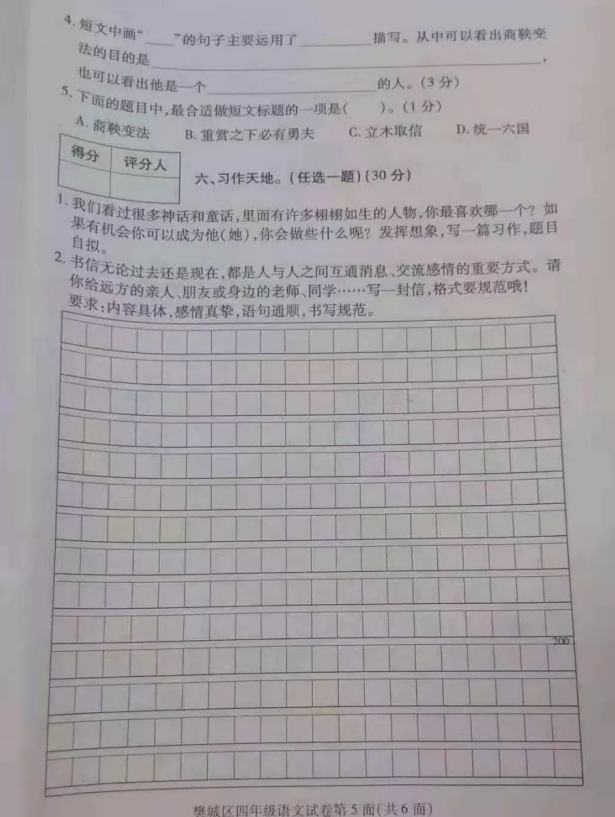 4. 短文中画“____”的句子主要运用了________描写。从中可以看出商鞅变
法的目的是________________________________,
也可以看出他是一个________________的人。(3分)
5. 下面的题目中,最合适做短文标题的一项是(    )。(1分)
A. 商鞅变法 B. 重赏之下必有勇夫 C. 立木取信 D. 统一六国
得分 评分人
六、习作天地。(任选一题)(30分)
1. 我们看过很多神话和童话,里面有许多栩栩如生的人物,你最喜欢哪一个?如
果有机会你可以成为他(她),你会做些什么呢?发挥想象,写一篇习作,题目
自拟。
2. 书信无论过去还是现在,都是人与人之间互通消息、交流感情的重要方式。请
你给远方的亲人、朋友或身边的老师、同学……写一封信,格式要规范哦!
要求:内容具体,感情真挚,语句通顺,书写规范。
200
樊城区四年级语文试卷第5面(共6面)